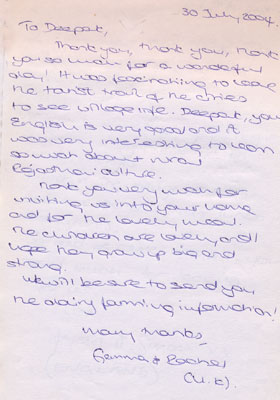 30 July, 2004.
To Deepak,
Thank you, thank you, thank
you so much for a wonderful
day! It was fascinating to leave
the tourist trail of the cities
to see village life. Deepak, your
English is very good and it
was very interesting to learn
so much about rural
Rajasthani culture.
Thank you very much for
inviting us into your home
and for the lovely meal.
The children are lovely and I
hope they grow up big and
strong.
We will be sure to send you
the dairy farming information!
Many thanks,
Gemma & Rachel
(U.K).